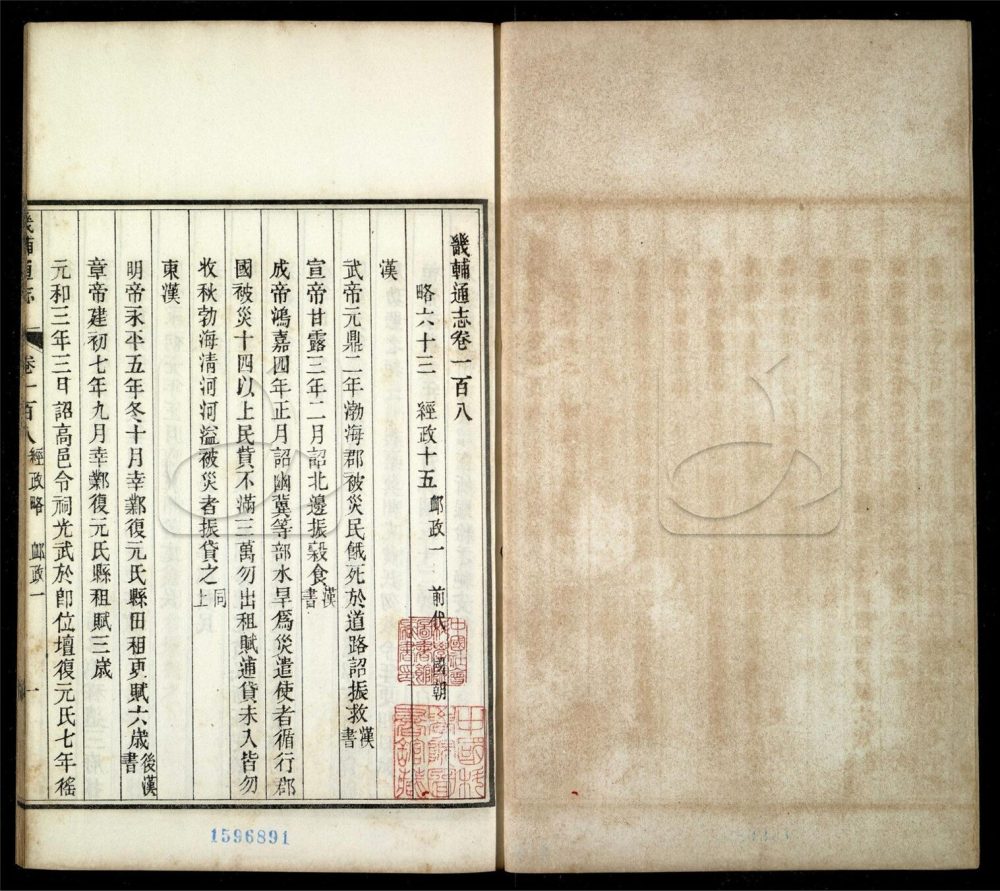 畿輔通志卷一百八
略六十三 經政十五 卹政一 前代 國朝
漢
武帝元鼎二年渤海郡被災民餓死於道路詔振救漢書
宣帝甘露三年二月詔北邊振穀食漢書
成帝鴻嘉四年正月詔幽冀等部水旱爲災遣使者循行郡
國被災十四以上民貲不滿三萬勿出租賦逋貸未入皆勿
收秋勃海清河河溢被災者振貸之同上
東漢
明帝永平五年冬十月幸鄴復元氏縣田租更賦六歲後漢書
章帝建初七年九月幸鄴復元氏縣租賦三歲
元和三年三月詔高邑令祠光武於卽位壇復元氏七年徭
畿輔通志 卷一百八 經政略 卹政一 一
1596891